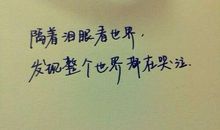 隔着泪眼看世界，
发现整个世界都在哭泣.